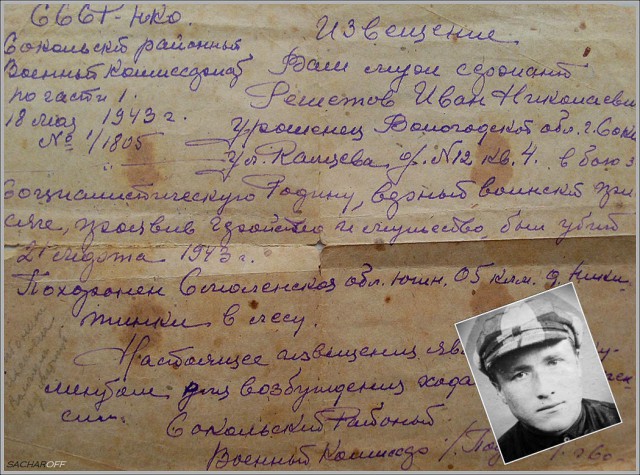 СССР-НКО.
Сокольский районный
Военный Комиссариат
по части 1.
18 мая 1943 г.
№ 1/1805
Извещение
Ваш муж сержант
Решетов Иван Николаевич
Уроженец Вологодской обл. г. Соко
ул. Канцева д. №12 кв. 4. в бою з
социалистическую Родину, верный воинской при
сяге, проявив геройство и мужество, был убит
21 марта 1943 г.
Похоронен Смоленская обл. южн. 05 клм. д. Ники
тинки в лесу.
Настоящее извещения яв
ментом для возбуждения хода
сии. Сокольский Районный
Военный Комиссар
SACHAROFF